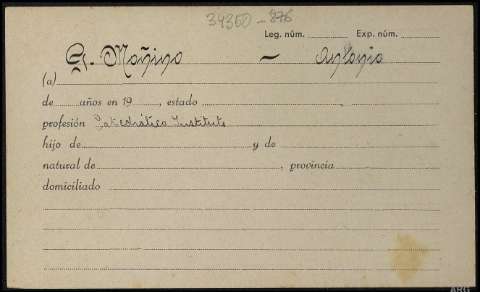 34360-876
Leg. núm. Exp. núm.
G. Moñino — Antonio
(a)
de años en 19 , estado
profesión Catedrático Instituto
hijo de y de
natural de , provincia
domiciliado
ARG